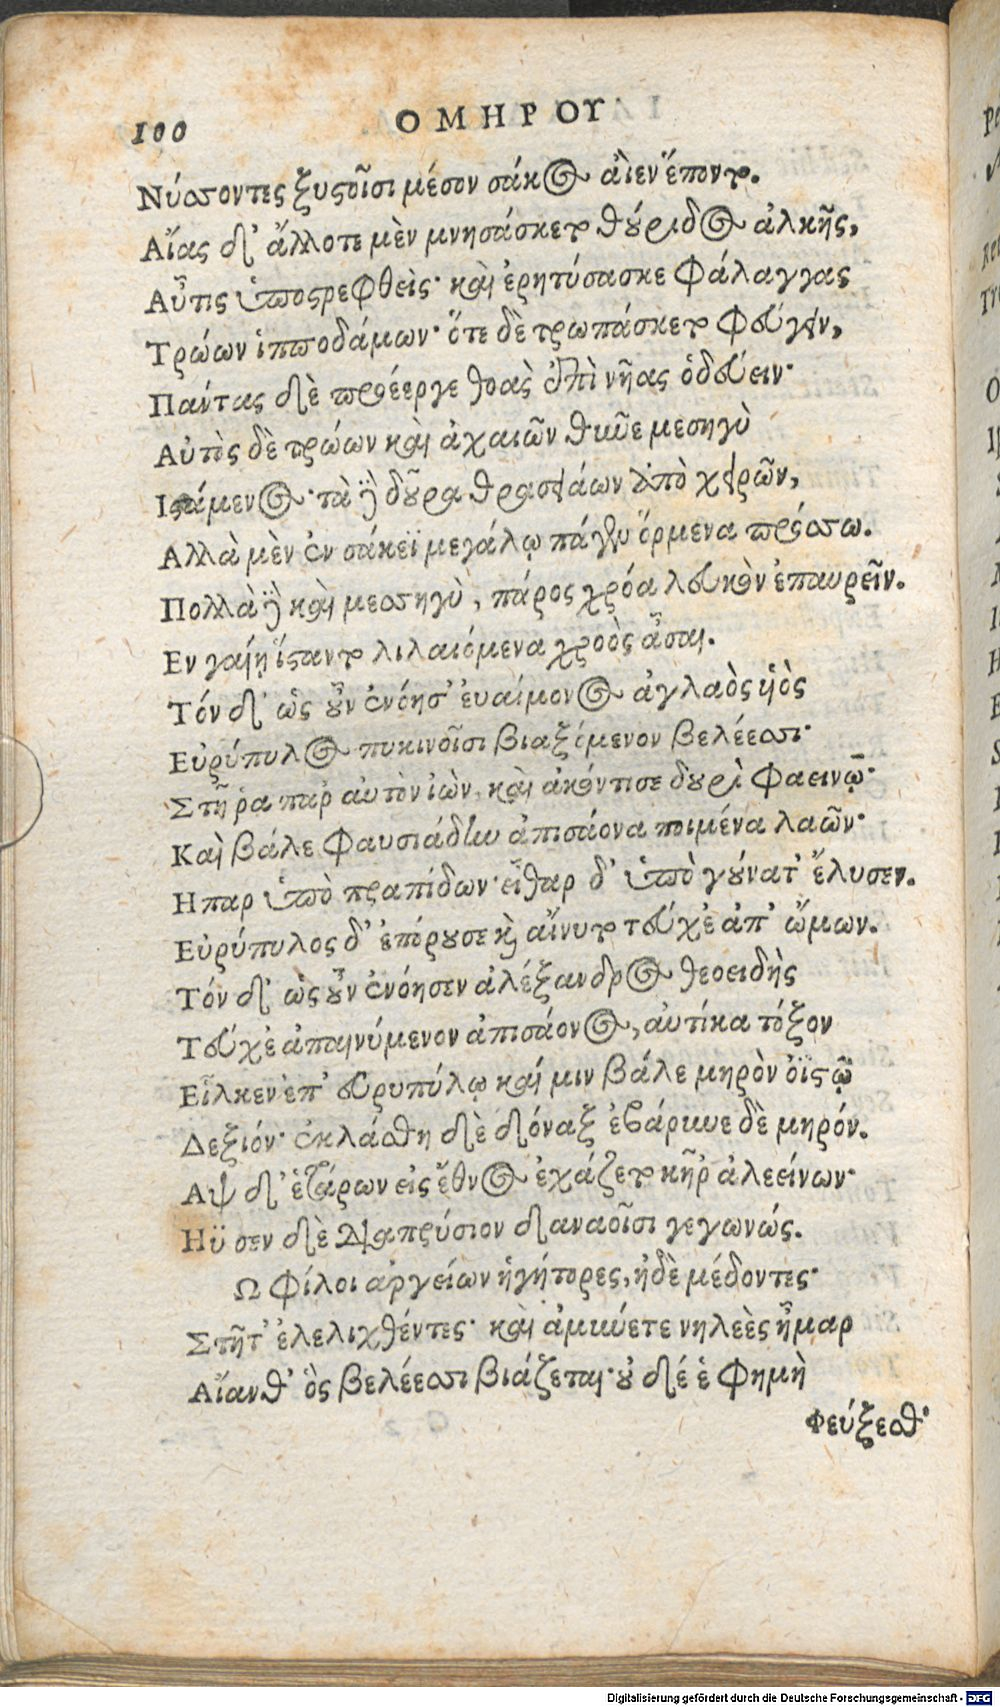 100 ΟΜΗΡΟΥ
Νύσσοντες ξυστοῖσι μέσον σάκος αἰεν ἕποντο.
Αἴας δ' ἄλλοτε μὲν μνησάσκετο θούριδος ἀλκῆς,
Αὖτις ὑποστρεφθεὶς· καὶ ἐρητύσασκε φάλαγγας
Τρώων ἱπποδάμων· ὅτε δὲ τρωπάσκετο φεύγειν,
Πάντας δὲ προέεργε θοὰς ἐπὶ νῆας ὁδεύειν·
Αὐτὸς δὲ τρώων καὶ ἀχαιῶν θῦνε μεσηγὺ
Ιστάμενος· τὰ δὲ δοῦρα θρασειάων ἀπὸ χειρῶν,
Αλλὰ μὲν ἐν σάκεϊ μεγάλῳ πάγεν ὅρμενα πρόσσω.
Πολλὰ δὲ καὶ μεσσηγὺ, πάρος χρόα λευκὸν ἐπαυρεῖν.
Εν γαίῃ ἵσταντο λιλαιόμενα χροὸς ἆσαι.
Τόν δ' ὡς οὖν ἐνόησ' ἐυαίμονος ἀγλαὸς ὑιὸς
Εὐρύπυλος πυκινοῖσι βιαζόμενον βελέεσσι·
Στῆ ῥα παρ αὐτὸν ἰὼν, καὶ ἀκόντισε δουρὶ φαεινῷ·
Καὶ βάλε φαυσιάδην ἀπισάονα ποιμένα λαῶν·
Ηπαρ ὑπὸ πραπίδων· εἶθαρ δ' ὑπὸ γούνατ' ἔλυσεν.
Εὐρύπυλος δ' ἐπόρουσε καὶ αἴνυτο τεύχε' ἀπ' ὤμων.
Τόν δ' ὡς οὖν ἐνόησεν ἀλέξανδρος θεοειδὴς
Τεύχε' ἀπαινύμενον ἀπισάονος, αὐτίκα τόξον
Εἷλκεν ἐπ' εὐρυπύλῳ καί μιν βάλε μηρὸν ὀϊστῷ
Δεξιόν· ἐκλάσθη δὲ δόναξ ἐβάρυνε δὲ μηρόν.
Αψ δ' ἑτάρων εἰς ἔθνος ἐχάζετο κῆρ' ἀλεείνων·
Ηΰσεν δὲ διαπρύσιον δαναοῖσι γεγωνώς.
Ω φίλοι ἀργείων ἡγήτορες, ἠδὲ μέδοντες·
Στῆτ' ἐλελιχθέντες· καὶ ἀμύνετε νηλεὲς ἦμαρ
Αἴανθ' ὃς βελέεσσι βιάζεται· οὐδέ ἑ φημὴ
Φεύξεσθ'
Digitalisierung gefördert durch die Deutsche Forschungsgemeinschaft - DFG